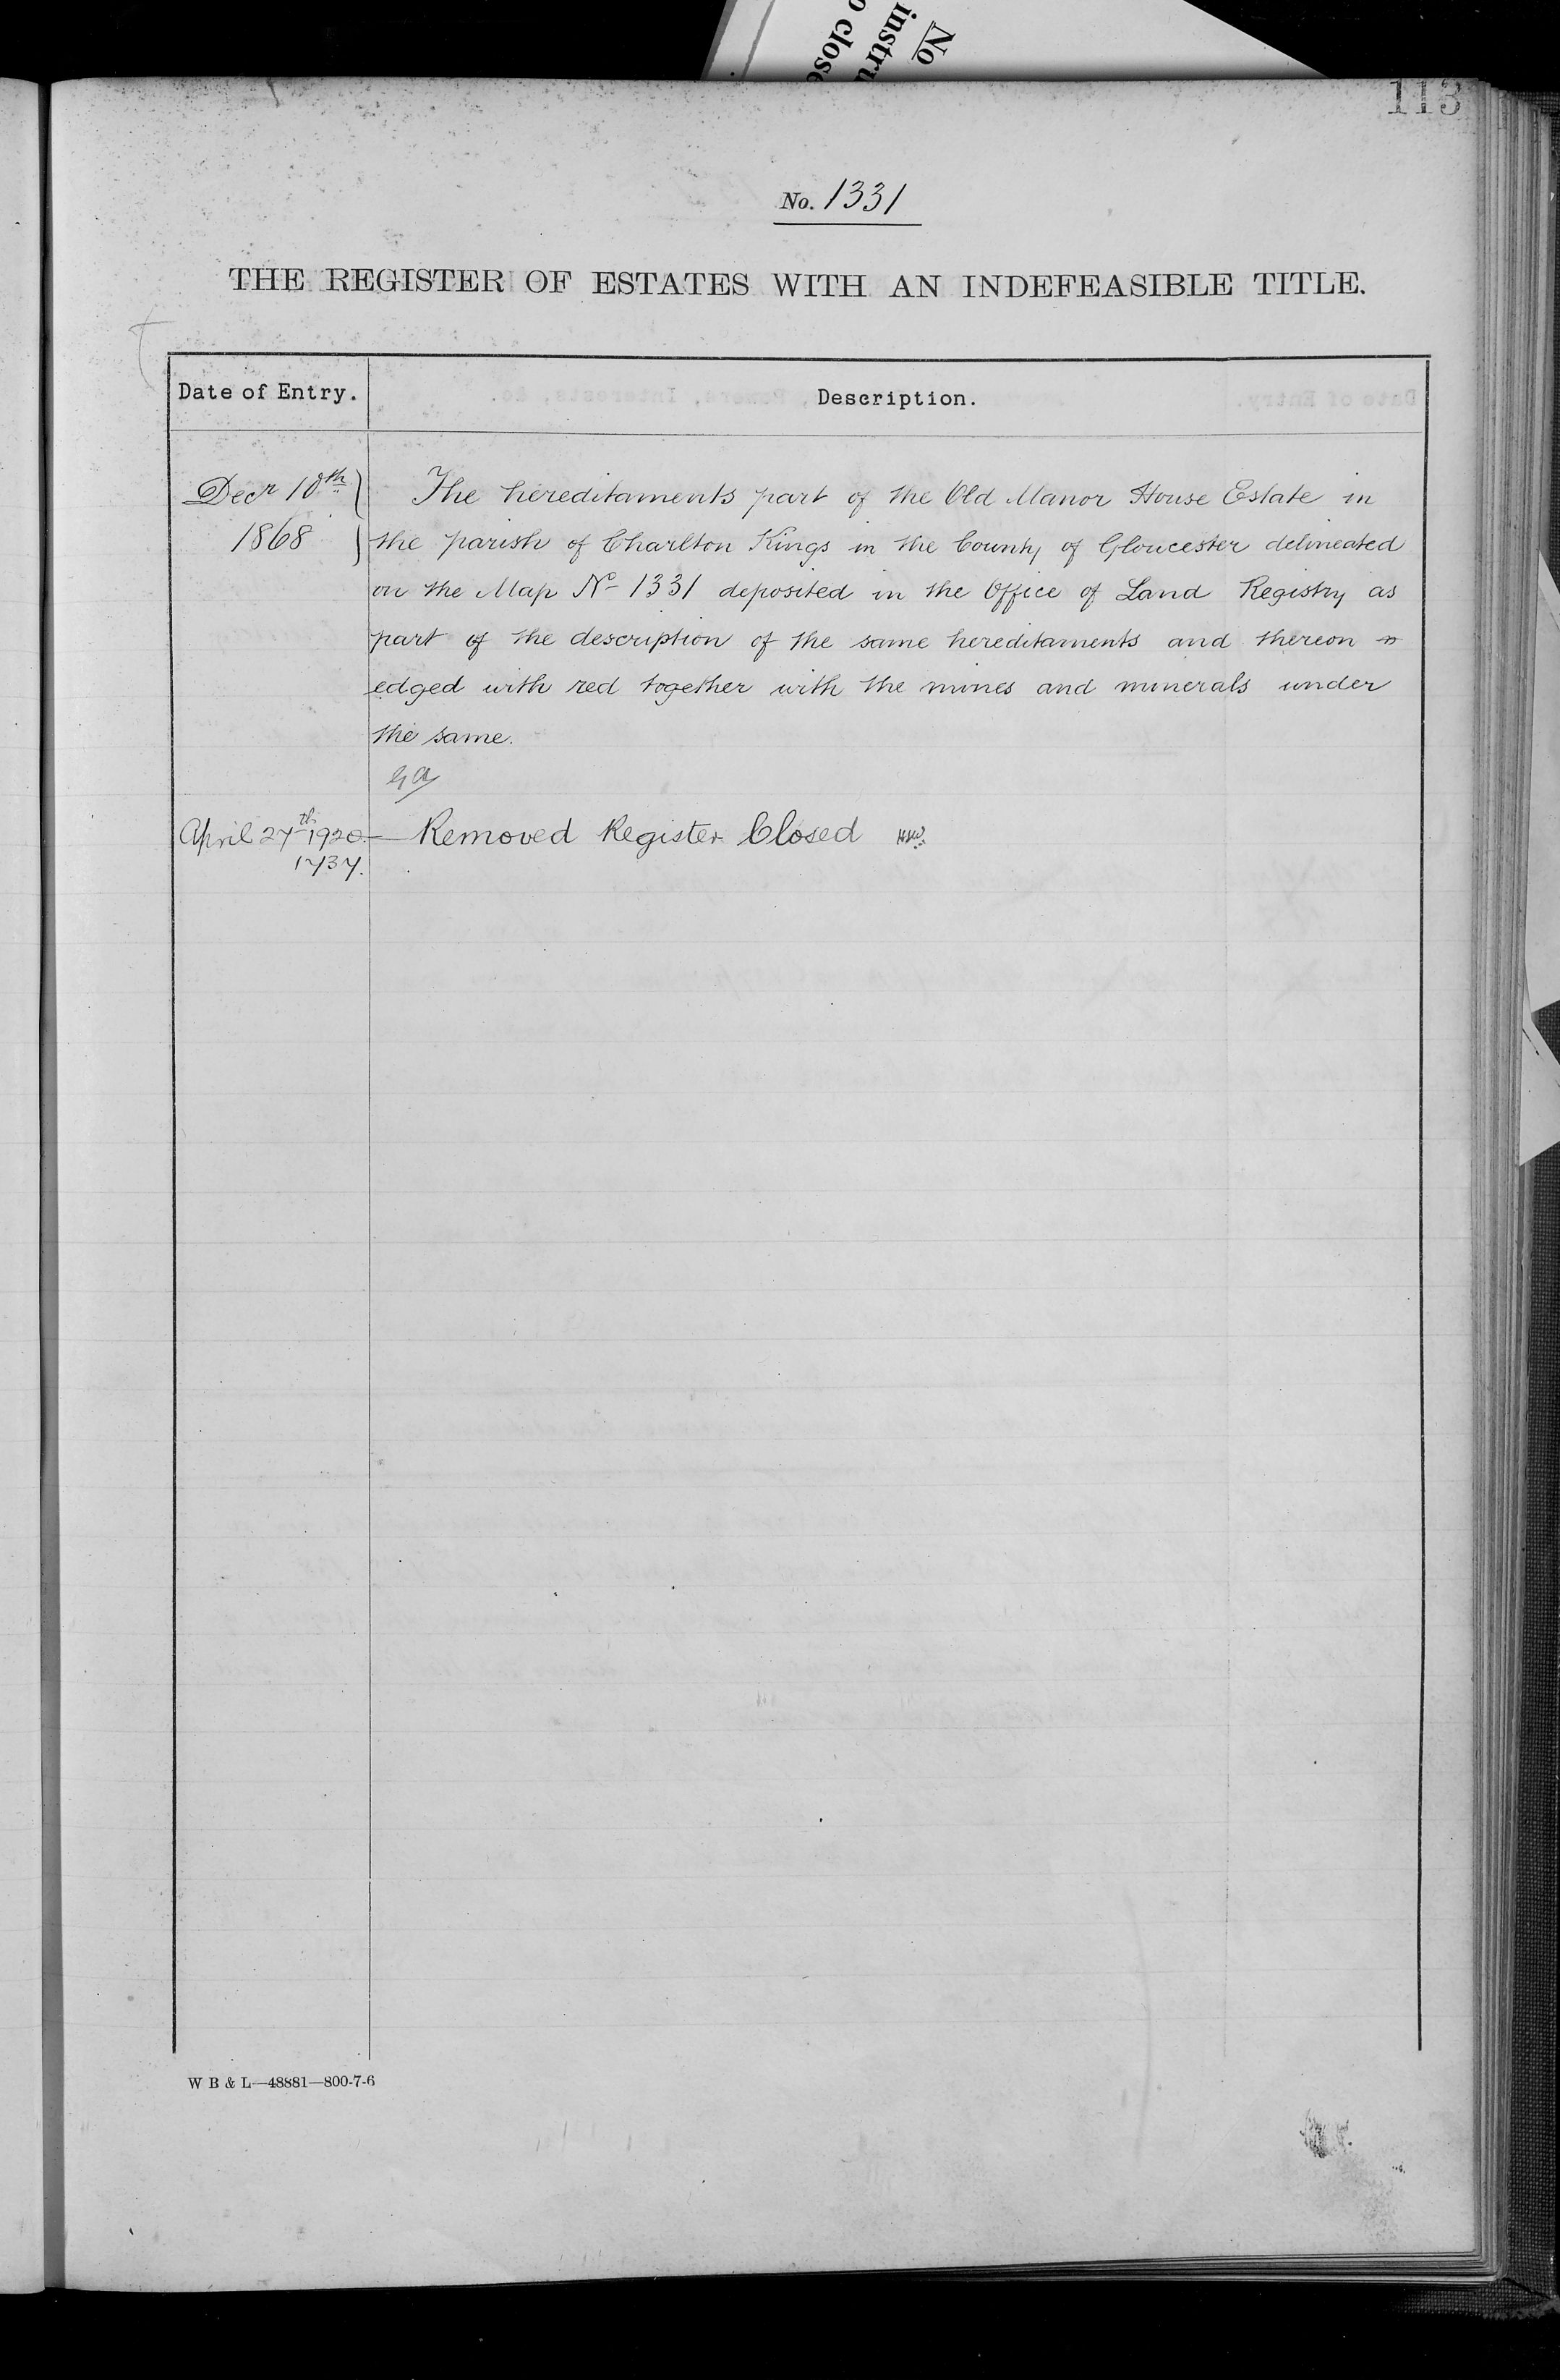 No
instru
o close
113
No. 1331
THE REGISTER OF ESTATES WITH AN INDEFEASIBLE TITLE.
Date of Entry.
Description.
Decr 10th
1868
The hereditaments part of the Old Manor House Estate in
the parish of Charlton Kings in the County of Gloucester delineated
on the Map No 1331 deposited in the Office of Land Registry as
part of the description of the same hereditaments and thereon
edged with red together with the mines and minerals under
the same.
April 27th 1920 — Removed Register Closed
1737.
W B & L—48881—800-7-6